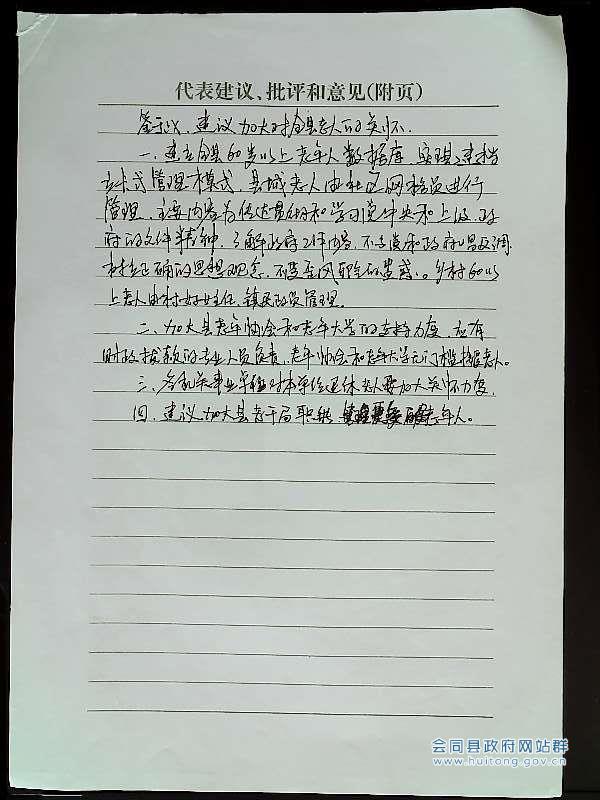 代表建议、批评和意见(附页)
鉴于此,建议加大对全县老人的关怀.
一、建立全县60岁以上老年人数据库,实现建档
立卡式管理模式,县城老人由社区网格员进行
管理,主要内容为传达贯彻和学习党中央和上级政
府的文件精神,了解政府工作内容,不 和政府唱反调
树立正确的思想观念,不受 的蛊惑。乡村60以
上老人由村妇女主任、镇民政员管理。
二、加大县老年协会和老年大学的支持力度,应有
财政拨款的专业人员负责,老年协会和老年大学无门槛接老人。
三、各机关事业单位对本单位退休老人要加大关怀力度,
四、建议加大县老干局职能 老年人。
会同县政府网站群
www.huitong.gov.cn